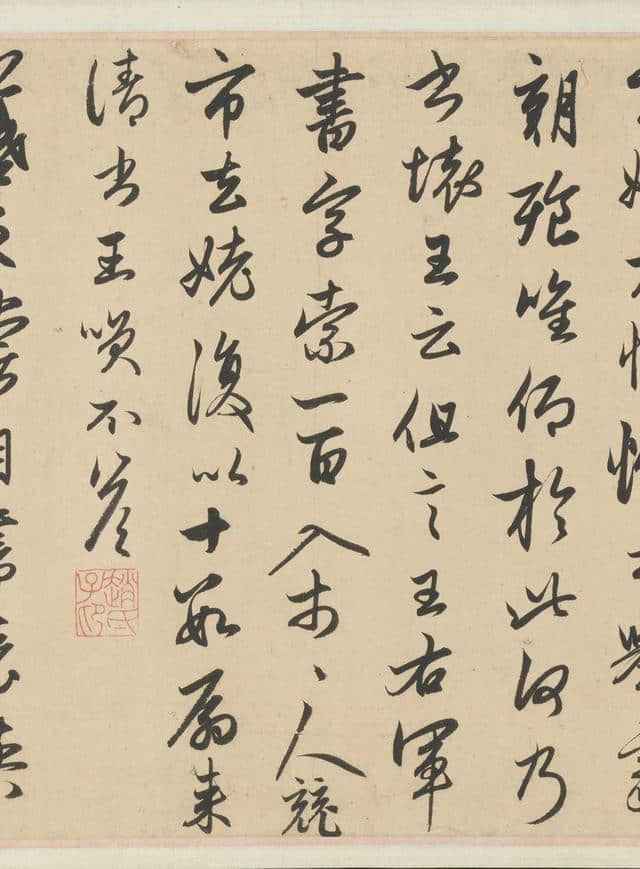 朝飧唯仰於此何乃
書壞王云但言王右軍
書字索一百入市〻人競
市去姥復以十數扇來
請書王笑不答
趙氏子昂